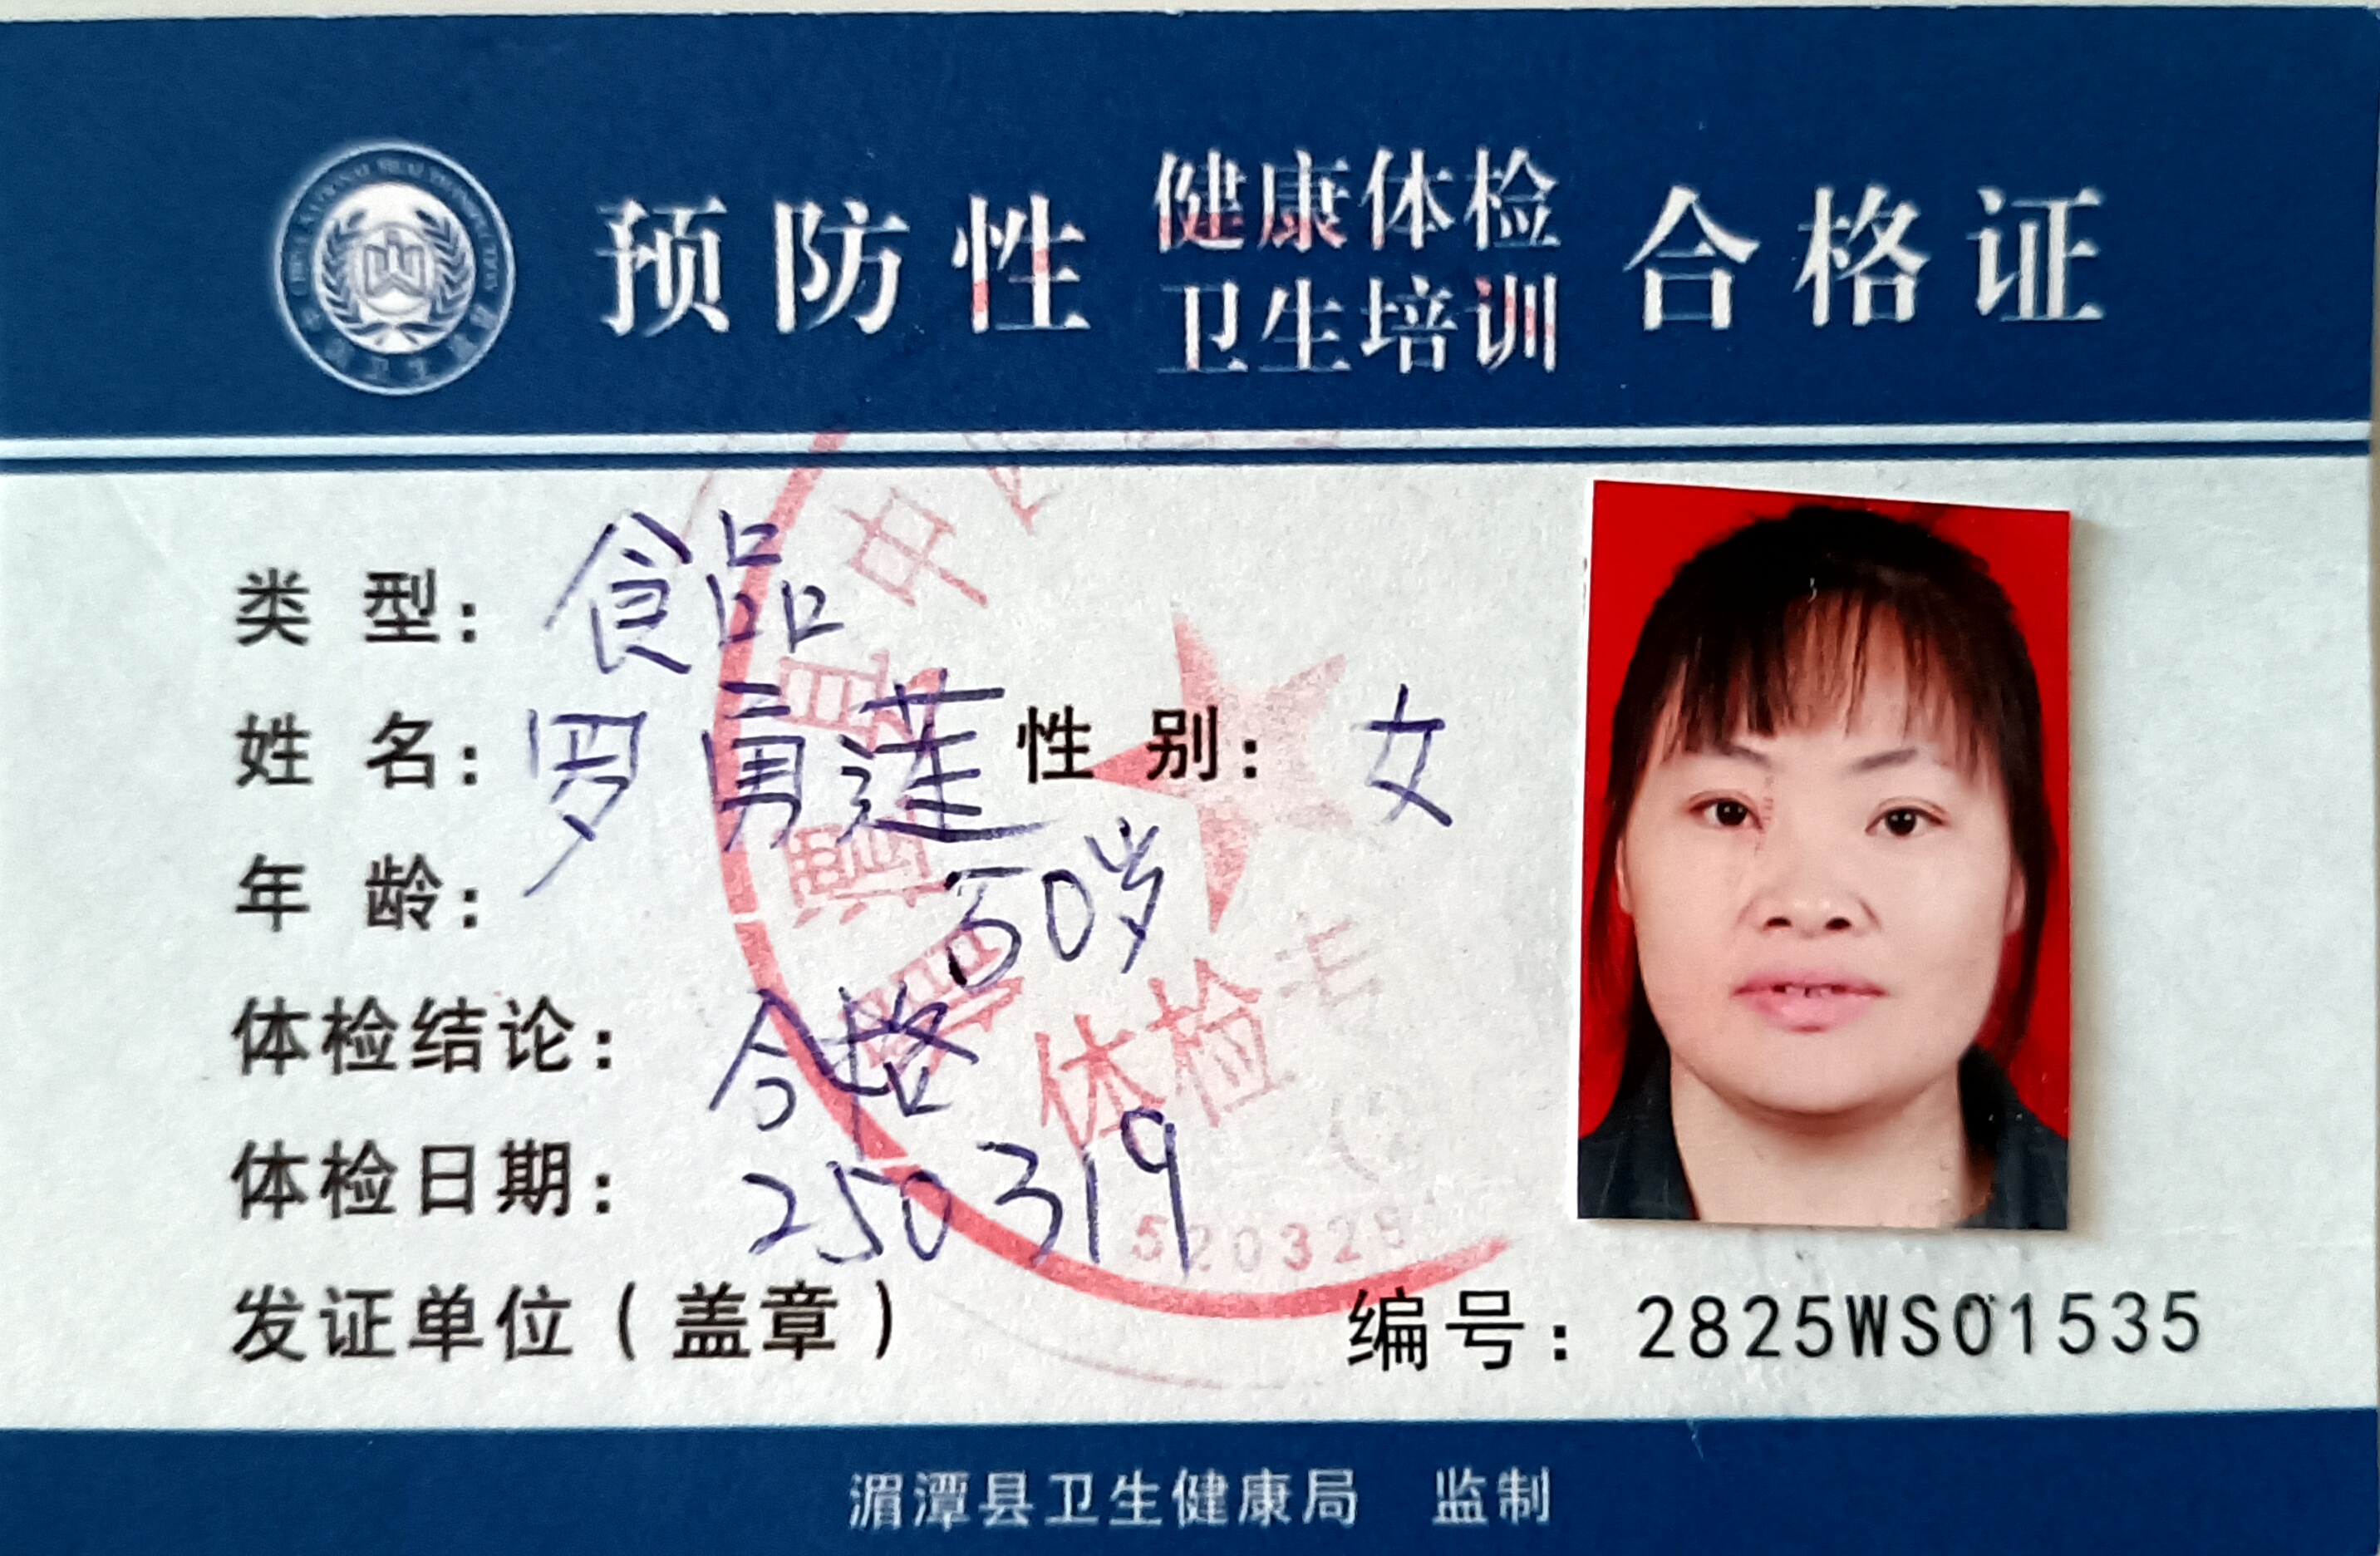 预防性 健康体检 合格证
卫生培训
类 型: 食品
姓 名: 罗勇莲 性 别: 女
年 龄: 50岁
体检结论: 合格
体检日期: 250319
体检
520325
发证单位(盖章)
编号: 2825WS01535
湄潭县卫生健康局 监制